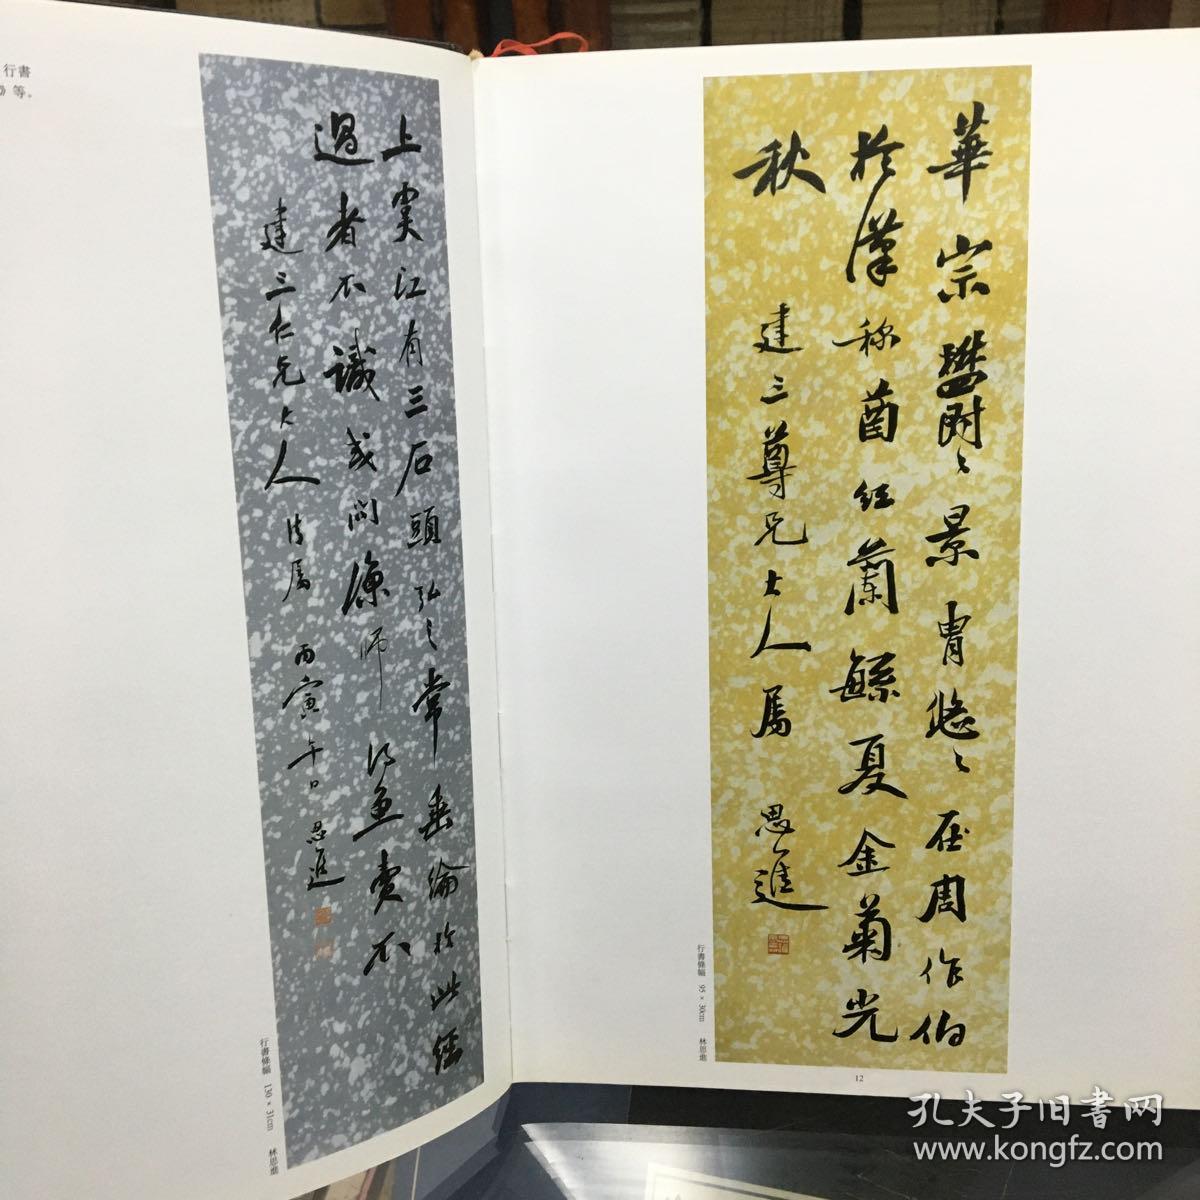 行書
等。
上虞江有三石頭弘之常垂綸於此經
過者不識或問漁師得魚賣不
建三仁兄大人法屬 丙寅午日 思進
行書條幅 130×31cm 林思進
華宗 景胄悠〻在周作伯
於漢称酋紅蘭緐夏金菊光
秋
建三尊兄大人屬 思進
行書條幅 95×30cm 林思進
12
孔夫子旧书网
www.kongfz.com